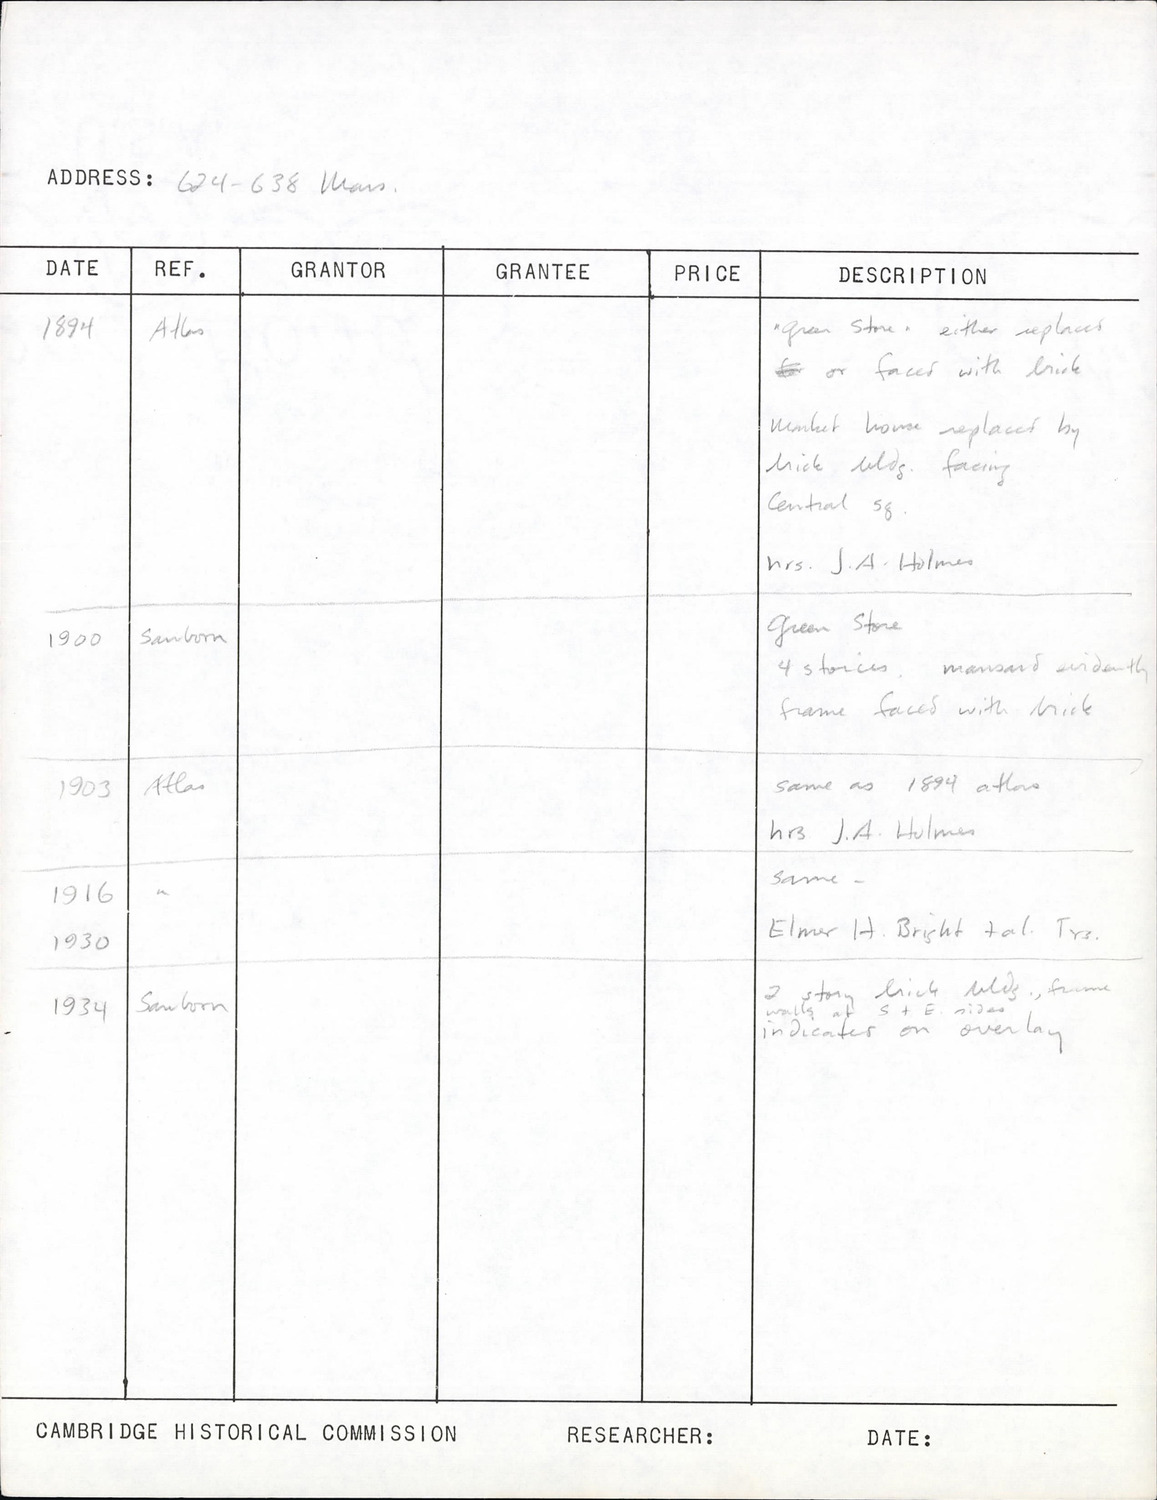 ADDRESS: 624-638 Mass.
DATE REF. GRANTOR GRANTEE PRICE DESCRIPTION
1894 Atlas "Green Store" either replaced
for or faced with brick
Market house replaced by
brick bldg. facing
Central sq.
hrs. J.A. Holmes
1900 Sanborn Green Store
4 stories, mansard evidently
frame faced with brick
1903 Atlas same as 1894 atlas
hrs J.A. Holmes
1916 " same -
1930 Elmer H. Bright et al. Trs.
1934 Sanborn 2 story brick bldg., frame
walls at S + E. sides
indicated on overlay
CAMBRIDGE HISTORICAL COMMISSION RESEARCHER: DATE: